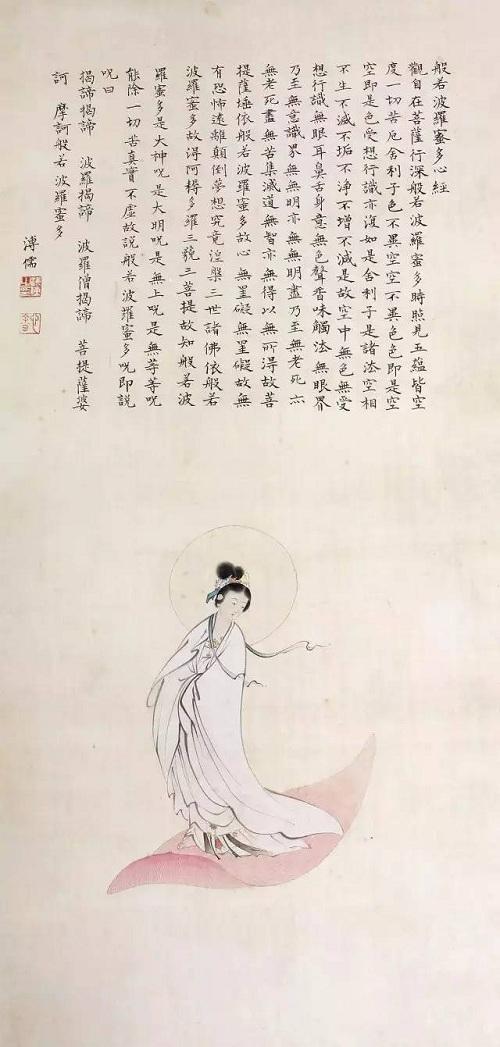 般若波羅蜜多心經
觀自在菩薩行深般若波羅蜜多時照見五蘊皆空
度一切苦厄舍利子色不異空空不異色色即是空
空即是色受想行識亦復如是舍利子是諸法空相
不生不滅不垢不淨不增不減是故空中無色無受
想行識無眼耳鼻舌身意無色聲香味觸法無眼界
乃至無意識界無無明亦無無明盡乃至無老死亦
無老死盡無苦集滅道無智亦無得以無所得故菩
提薩埵依般若波羅蜜多故心無罣礙無罣礙故無
有恐怖遠離顛倒夢想究竟涅槃三世諸佛依般若
波羅蜜多故得阿耨多羅三藐三菩提故知般若波
羅蜜多是大神呪是大明呪是無上呪是無等等呪
能除一切苦真實不虛故說般若波羅蜜多呪即說
呪曰
揭諦揭諦 波羅揭諦 波羅僧揭諦 菩提薩婆
訶 摩訶般若波羅蜜多
溥儒